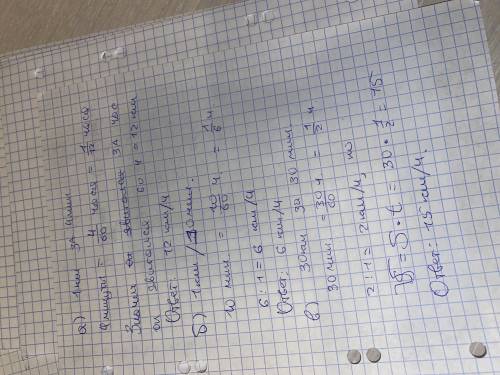 а) 1 км за 5 мин
5 минуты = 5/60 часа = 1/12 часа
Значит он за час
он двигался 60 : = 12 км
Ответ: 12 км/ч
б) 1 км / 10 мин.
10 мин = 10/60 ч = 1/6 ч
6 : 1 = 6 км/ч
Ответ: 6 км/ч
в) 30км за 30 мин.
30 мин = 30/60 ч = 1/2 ч
2 : 1 = 2 км/ч,
V = S · t = 30 · 1/2 = 15
Ответ: 15 км/ч.